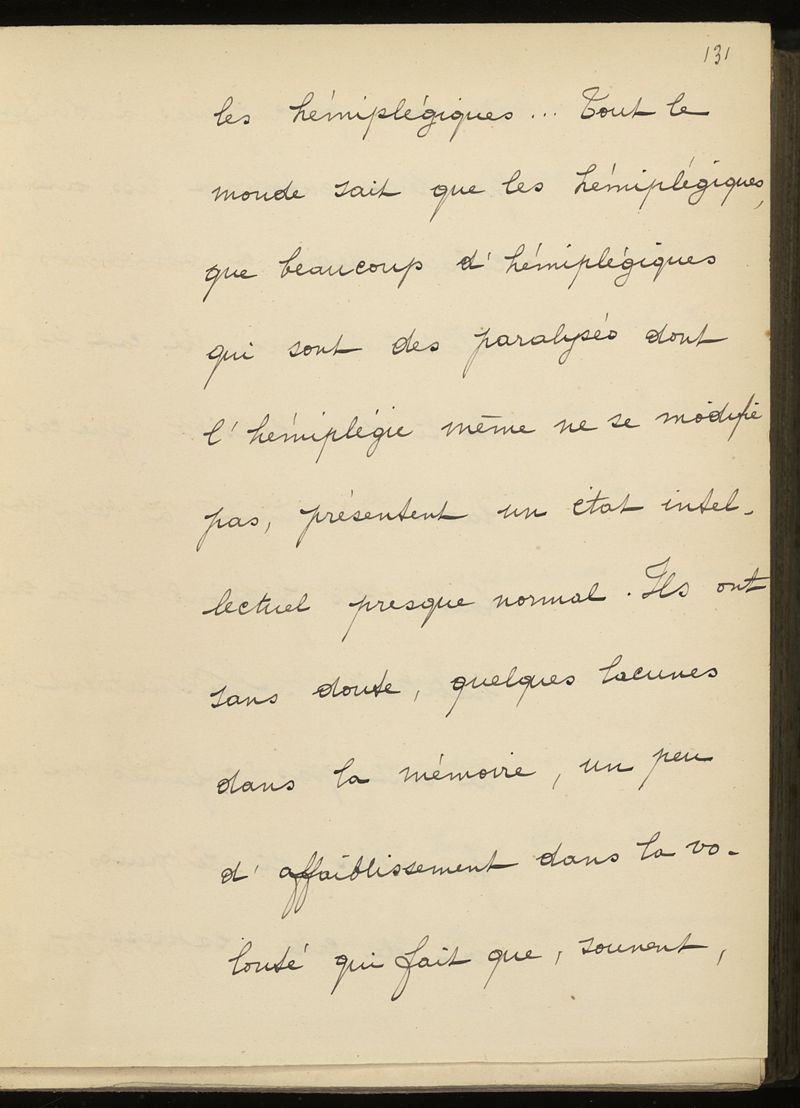 131
les hémiplégiques... Tout le
monde sait que les hémiplégiques,
que beaucoup d'hémiplégiques
qui sont des paralysés dont
l'hémiplégie même ne se modifie
pas, présentent un état intel-
lectuel presque normal. Ils ont
sans doute, quelques lacunes
dans la mémoire, un peu
d'affaiblissement dans la vo-
lonté qui fait que, souvent,